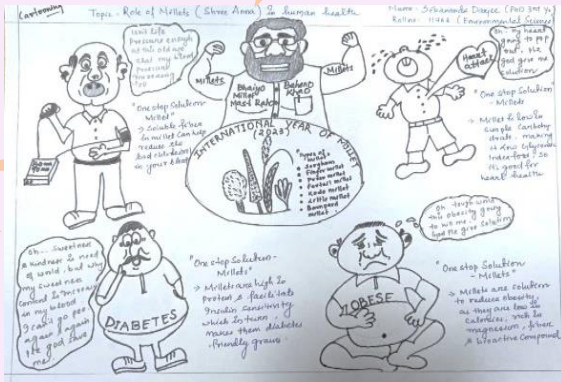 Cartooning
Topic - Role of Millets (Shree Anna) in human health
(Environmental Science
Isn't life
Pressure enough
at this old age
that my blood
pressure
increasing
too
"One stop Solution -
Millet"
→ Soluble fiber
in millet can help
reduce the
bad cholesterol
in your blood
Millets
Millets
Bhaiyo
Baheno
Millet
Khao
Mast Raho
INTERNATIONAL YEAR OF MILLET
(2023)
Types of
millet
Sorghum
Finger millet
Proso millet
Foxtail millet
Kodo millet
Little millet
Barnyard
millet
Oh.. my heart
going to pop
out.. plz
god give me
solution
Heart
attack
"One stop Solution
- Millets"
→ Millet is low in
simple carbohy-
drate, making
it low Glycemic
Index food; so
it's good for
heart health
oh.. sweetness
& kindness is need
of world, but why
my sweetness
content is increasing
in my blood
I can't go pee
again & again
plz god save
me..
DIABETES
"One stop Solution -
Millets"
→ Millets are high in
Protein & facilitate
Insulin sensitivity
which in turn
makes them diabetes
friendly grains.
Oh
this obesity going
to kill me..
God plz give solution
OBESE
"One stop Solution
- Millets"
→ Millets are solution
to reduce obesity,
as they are low in
calories, rich in
magnesium, fiber
& bioactive compound